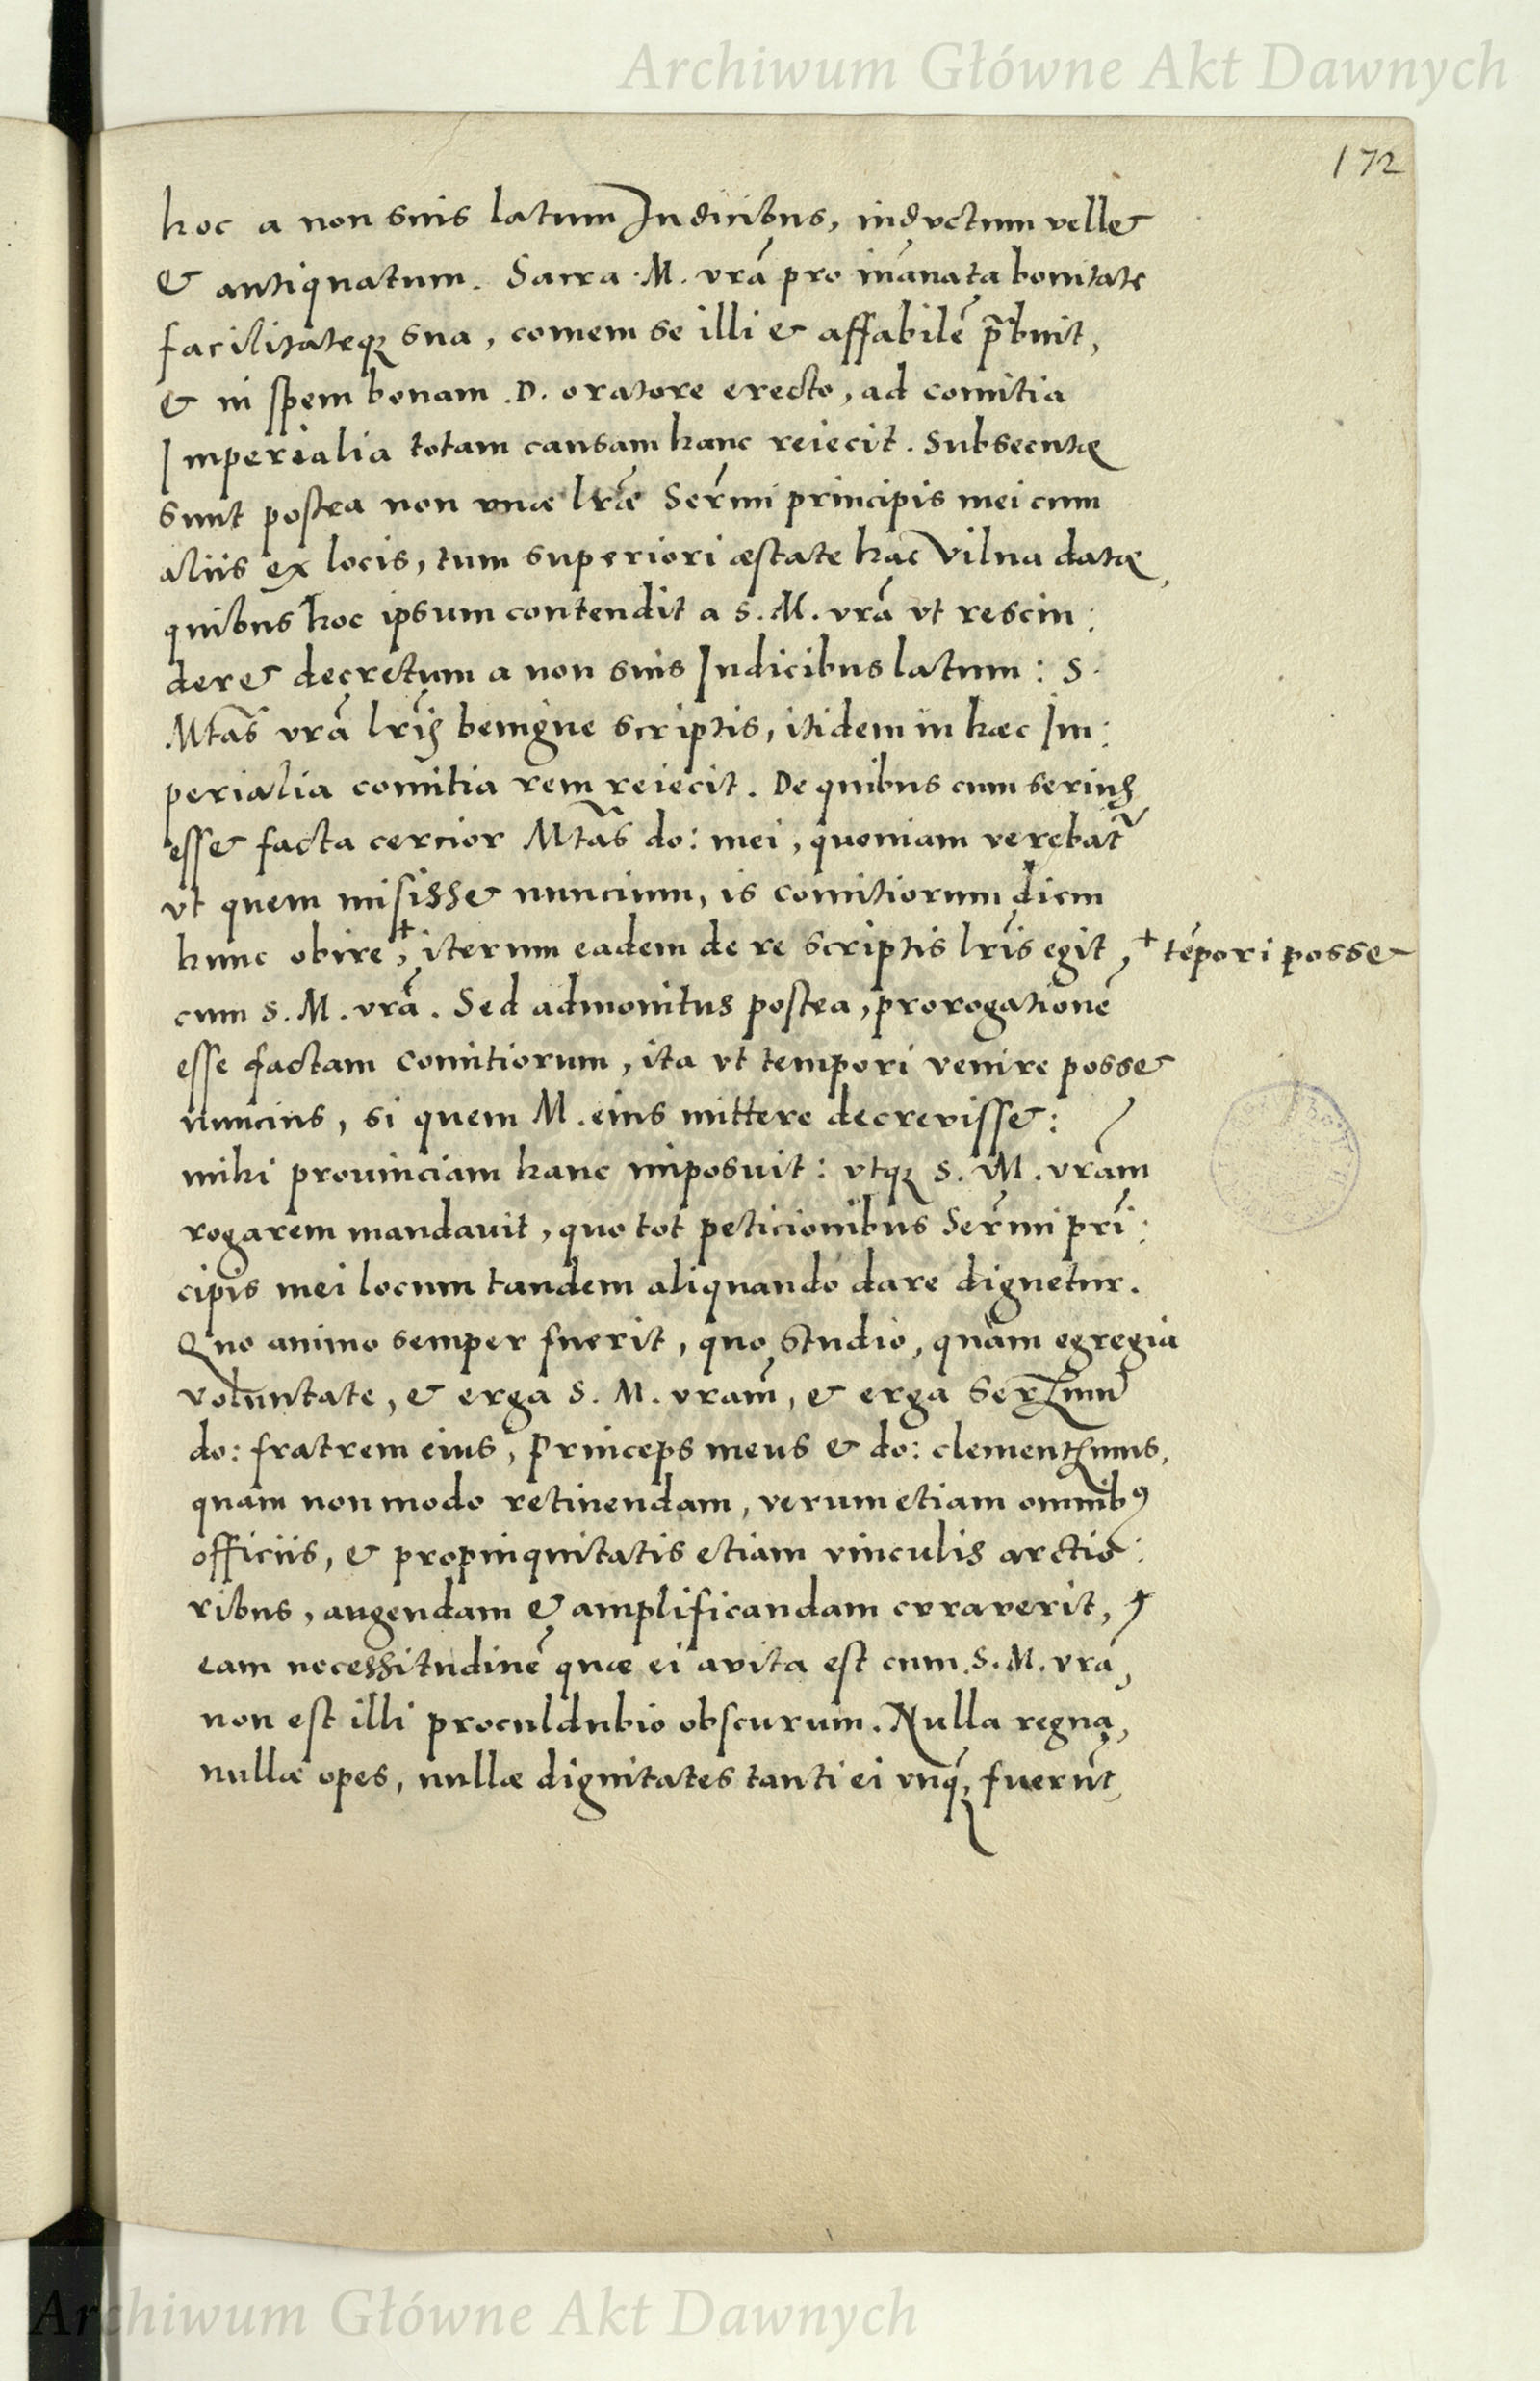 Archiwum Główne Akt Dawnych
172
hoc a non suis latum Iudicibus, inductum vellet
& antiquatum. Sacra M. vrã pro innata bonitate
facilitateq; sua, comem se illi & affabilẽ p̃buit,
& in spem bonam .D. oratore erecto, ad comitia
Imperialia totam causam hanc reiecit. Subsecutę
sunt postea non unæ lr̃æ Ser̃mi principis mei cum
aliis ex locis, tum superiori æstate hac Vilna datę,
quibus hoc ipsum contendit a S. M. vrã vt rescin:
deret decretum a non suis Iudicibus latum: S.
Mtas̃ vrã lr̃is benigne scriptis, itidem in hæc Im:
perialia comitia rem reiecit. De quibus cum serius
esset facta cercior Mtãs do: mei, quoniam verebatr̃
vt quem misisset nuncium, is comitiorum diem
hunc obiret,+ iterum eadem de re scriptis lr̃is egit, + tẽpori posset
cum S. M. vrã. Sed admonitus postea, prorogationẽ
esse factam comitiorum, ita vt tempori venire posset
nuncius, si quem M. eius mittere decrevisset:
mihi prouinciam hanc imposuit: vtq; S. M. vrãm
rogarem mandauit, quo tot peticionibus Ser̃mi prĩ:
cipis mei locum tandem aliquando dare dignetur.
Quo animo semper fuerit, quo studio, quàm egregia
voluntate, & erga S. M. vram̃, & erga Serzmũ
do: fratrem eius, Princeps meus & do: clementzmus,
quàm non modo retinendam, verum etiam omnib9
officiis, & propinquitatis etiam vinculis arctio:
ribus, augendam & amplificandam curaverit,
eam necessitudinẽ quæ ei avita est cum S. M. vrã,
non est illi proculdubio obscurum. Nulla regna,
nullæ opes, nullæ dignitates tanti ei vnq̃, fuerũt,
Archiwum Główne Akt Dawnych